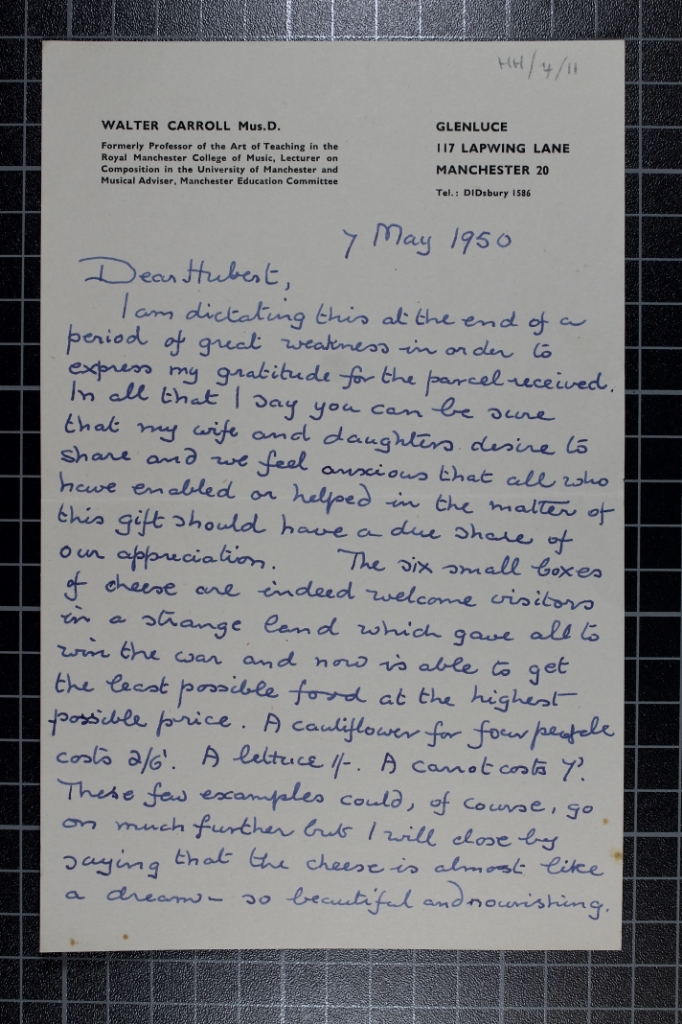 HH/4/11
WALTER CARROLL Mus.D.
Formerly Professor of the Art of Teaching in the
Royal Manchester College of Music, Lecturer on
Composition in the University of Manchester and
Musical Adviser, Manchester Education Committee
GLENLUCE
117 LAPWING LANE
MANCHESTER 20
Tel.: DIDsbury 1586
7 May 1950
Dear Hubert,
I am dictating this at the end of a
period of great weakness in order to
express my gratitude for the parcel received.
In all that I say you can be sure
that my wife and daughters desire to
share and we feel anxious that all who
have enabled or helped in the matter of
this gift should have a due share of
our appreciation. The six small boxes
of cheese are indeed welcome visitors
in a strange land which gave all to
win the war and now is able to get
the least possible food at the highest
possible price. A cauliflower for four people
costs 2/6'. A lettuce 1/-. A carrot costs 7'.
These few examples could, of course, go
on much further but I will close by
saying that the cheese is almost like
a dream - so beautiful and nourishing.